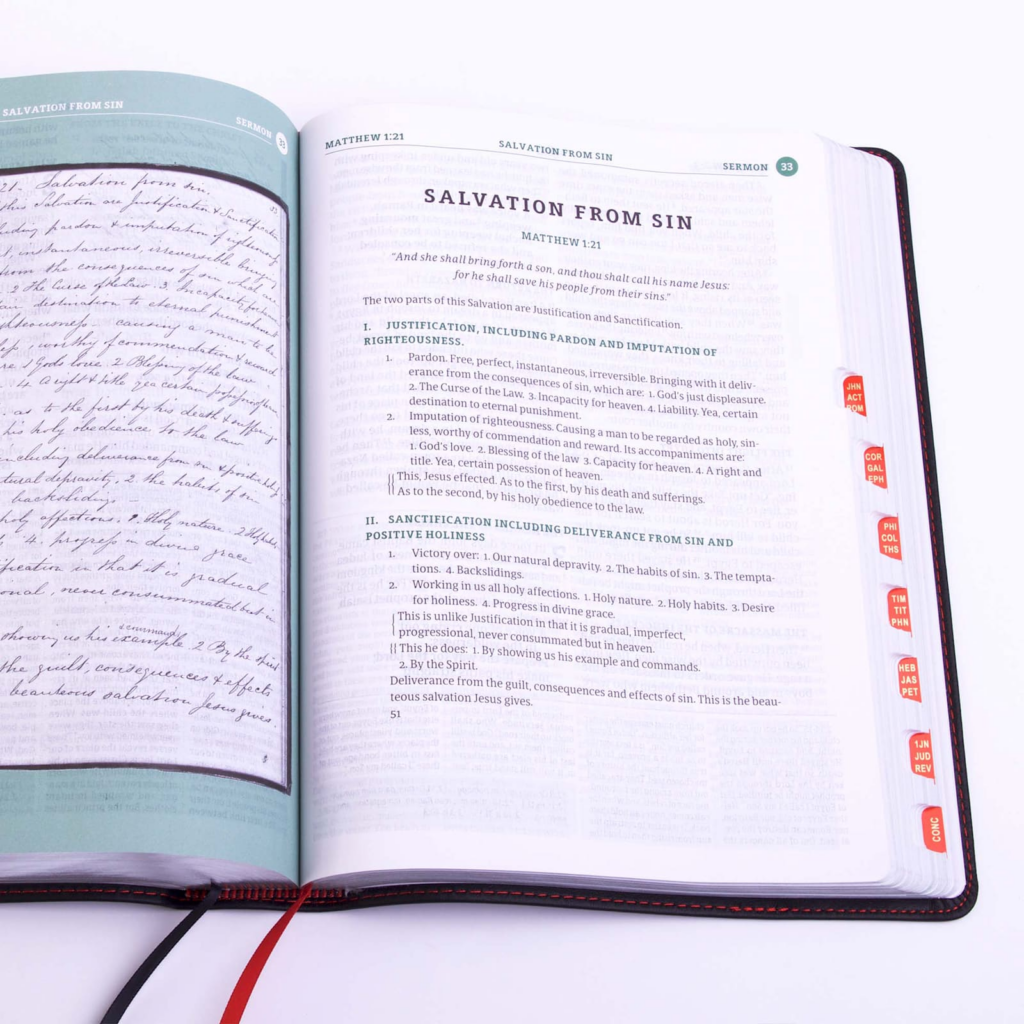 SALVATION FROM SIN
SERMON 33
21. Salvation from sin.
this Salvation are Justification & Sanctificatio
uding pardon & imputation of righteousn
instantaneous, irreversible bringing
from the consequences of sin which are
2 The Curse of the Law. 3. Incapacity for heaven
destination to eternal punishment
causing a man to be
worthy of commendation & reward
1 Gods love. 2 Blessing of the law
4. A right & title yea certain possession
as to the first by his death & suffering
his holy obedience to the law
including deliverance from sin & positive holy
tural depravity, 2. the habits of sin
backslidings
holy affections. 1. Holy nature. 2 Holy habits
4. Progress in divine grace
fication in that it is gradual
onal, never consummated but in
commands
showing us his example. 2 By the spirit
the guilt, consequences & effects
beauteous salvation Jesus gives
MATTHEW 1:21
SALVATION FROM SIN
SERMON 33
SALVATION FROM SIN
MATTHEW 1:21
"And she shall bring forth a son, and thou shalt call his name Jesus:
for he shall save his people from their sins."
The two parts of this Salvation are Justification and Sanctification.
I. JUSTIFICATION, INCLUDING PARDON AND IMPUTATION OF
RIGHTEOUSNESS.
1. Pardon. Free, perfect, instantaneous, irreversible. Bringing with it deliv-
erance from the consequences of sin, which are: 1. God's just displeasure.
2. The Curse of the Law. 3. Incapacity for heaven. 4. Liability. Yea, certain
destination to eternal punishment.
2. Imputation of righteousness. Causing a man to be regarded as holy, sin-
less, worthy of commendation and reward. Its accompaniments are:
1. God's love. 2. Blessing of the law 3. Capacity for heaven. 4. A right and
title. Yea, certain possession of heaven.
This, Jesus effected. As to the first, by his death and sufferings.
As to the second, by his holy obedience to the law.
II. SANCTIFICATION INCLUDING DELIVERANCE FROM SIN AND
POSITIVE HOLINESS
1. Victory over: 1. Our natural depravity. 2. The habits of sin. 3. The tempta-
tions. 4. Backslidings.
2. Working in us all holy affections. 1. Holy nature. 2. Holy habits. 3. Desire
for holiness. 4. Progress in divine grace.
This is unlike Justification in that it is gradual, imperfect,
progressional, never consummated but in heaven.
This he does: 1. By showing us his example and commands.
2. By the Spirit.
Deliverance from the guilt, consequences and effects of sin. This is the beau-
teous salvation Jesus gives.
51
JHN
ACT
ROM
COR
GAL
EPH
PHI
COL
THS
TIM
TIT
PHN
HEB
JAS
PET
1JN
JUD
REV
CONC